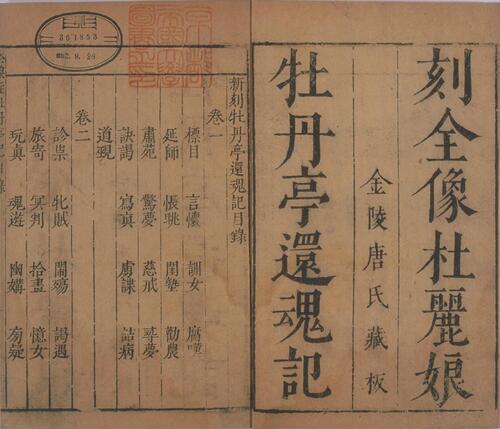 刻全像杜麗娘
金陵唐氏藏板
牡丹亭還魂記
新刻牡丹亭還魂記目錄
卷一
標目 言懷 訓女 腐嘆
延師 悵眺 閨塾 勸農
肅苑 驚夢 慈戒 尋夢
訣謁 寫真 虜諜 詰病
道覡
卷二
診祟 牝賊 鬧殤 謁遇
旅寄 冥判 拾畫 憶女
玩真 魂遊 幽媾 旁疑
361853